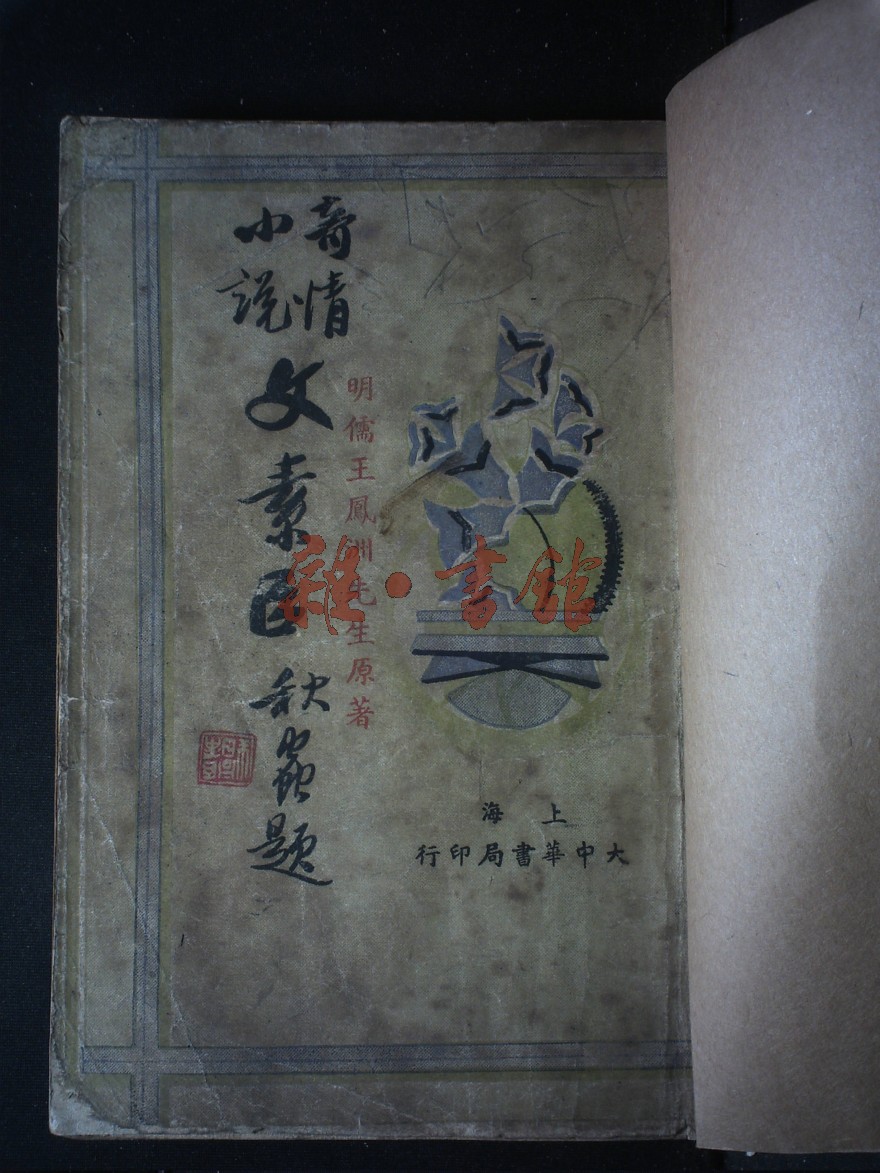 奇情
小説
文素臣
秋蟲題
明儒王鳳洲先生原著
上海
大中華書局印行
雜·書館